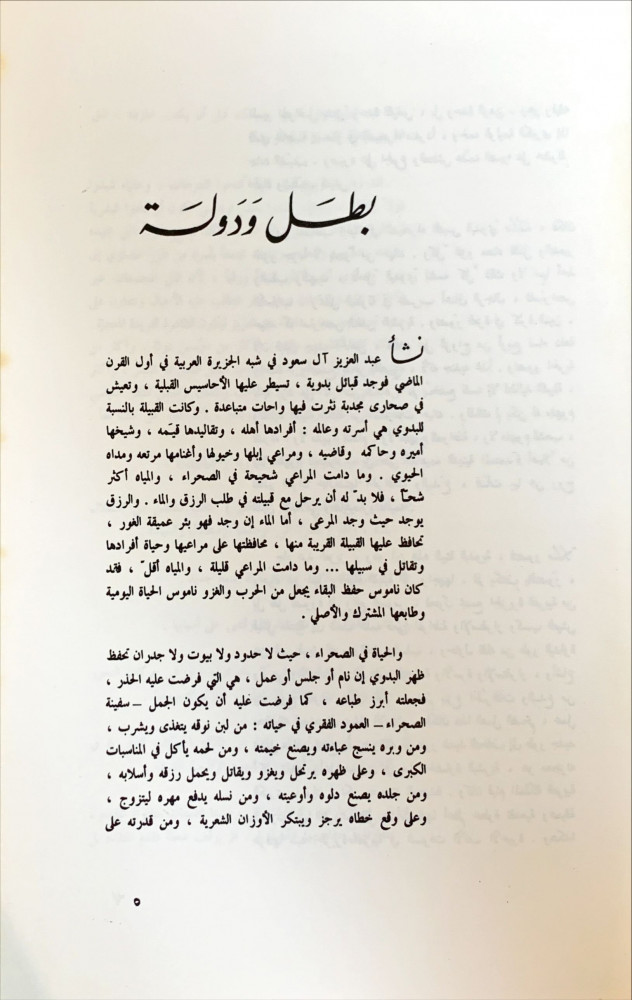 بطل ودولة
نشأ عبد العزيز آل سعود في شبه الجزيرة العربية في أول القرن
الماضي فوجد قبائل بدوية ، تسيطر عليها الأحاسيس القبلية ، وتعيش
في صحارى مجدبة نثرت فيها واحات متباعدة . وكانت القبيلة بالنسبة
للبدوي هي أسرته وعالمه : أفرادها أهله ، وتقاليدها قيّمه ، وشيخها
أميره وحاكمه وقاضيه ، ومراعي إبلها وخيولها وأغنامها مرتعه ومداه
الحيوي . وما دامت المراعي شحيحة في الصحراء ، والمياه أكثر
شحّاً ، فلا بدّ له أن يرحل مع قبيلته في طلب الرزق والماء . والرزق
يوجد حيث وجد المرعى ، أما الماء إن وجد فهو بئر عميقة الغور ،
تحافظ عليها القبيلة القريبة منها ، محافظتها على مراعيها وحياة أفرادها
وتقاتل في سبيلها ... وما دامت المراعي قليلة ، والمياه أقلّ ، فقد
كان ناموس حفظ البقاء يجعل من الحرب والغزو ناموس الحياة اليومية
وطابعها المشترك والأصلي .
والحياة في الصحراء ، حيث لا حدود ولا بيوت ولا جدران تحفظ
ظهر البدوي إن نام أو جلس أو عمل ، هي التي فرضت عليه الحذر ،
فجعلته أبرز طباعه ، كما فرضت عليه أن يكون الجمل – سفينة
الصحراء – العمود الفقري في حياته : من لبن نوقه يتغذى ويشرب ،
ومن وبره ينسج عباءته ويصنع خيمته ، ومن لحمه يأكل في المناسبات
الكبرى ، وعلى ظهره يرتحل ويغزو ويقاتل ويحمل رزقه وأسلابه ،
ومن جلده يصنع دلوه وأوعيته ، ومن نسله يدفع مهره ليتزوج ،
وعلى وقع خطاه يرجز ويبتكر الأوزان الشعرية ، ومن قدرته على
٥